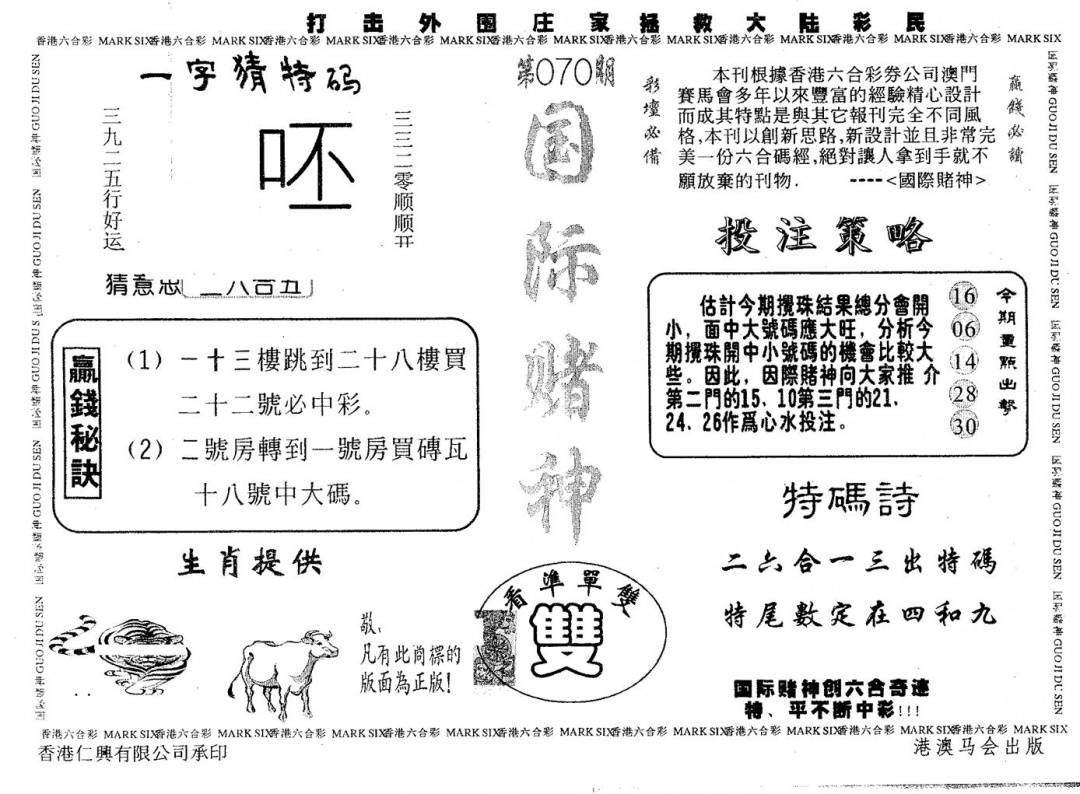 打击外围庄家拯救大陆彩民
香港六合彩 MARK SIX香港六合彩 MARK SIX香港六合彩 MARK SIX香港六合彩 MARK SIX香港六合彩 MARK SIX香港六合彩 MARK SIX香港六合彩 MARK SIX香港六合彩 MARK SIX香港六合彩 MARK SIX
一字猜特码
三九二五行好运
呸
三三二零顺顺开
猜意思 二八百九
赢錢秘訣
(1) 一十三樓跳到二十八樓買
二十二號必中彩。
(2) 二號房轉到一號房買磚瓦
十八號中大碼。
生肖提供
敬,
凡有此商標的
版面為正版!
第070期
国际赌神
看準單雙
雙
彩壇必備
本刊根據香港六合彩券公司澳門
賽馬會多年以來豐富的經驗精心設計
而成其特點是與其它報刊完全不同風
格,本刊以創新思路,新設計並且非常完
美一份六合碼經,絕對讓人拿到手就不
願放棄的刊物. ----<國際賭神>
贏錢必讀
投注策略
估計今期攪珠結果總分會開
小，面中大號碼應大旺，分析今
期攪珠開中小號碼的機會比較大
些。因此，因際賭神向大家推 介
第二門的15．10第三門的21．
24．26作爲心水投注。
16
06
14
28
30
今期重點出擊
特碼詩
二六合一三出特碼
特尾數定在四和九
国际赌神创六合奇迹
特、平不断中彩!!!
香港六合彩 MARK SIX香港六合彩 MARK SIX香港六合彩 MARK SIX香港六合彩 MARK SIX香港六合彩 MARK SIX香港六合彩 MARK SIX香港六合彩 MARK SIX香港六合彩 MARK SIX香港六合彩 MARK SIX
香港仁興有限公司承印
港澳马会出版